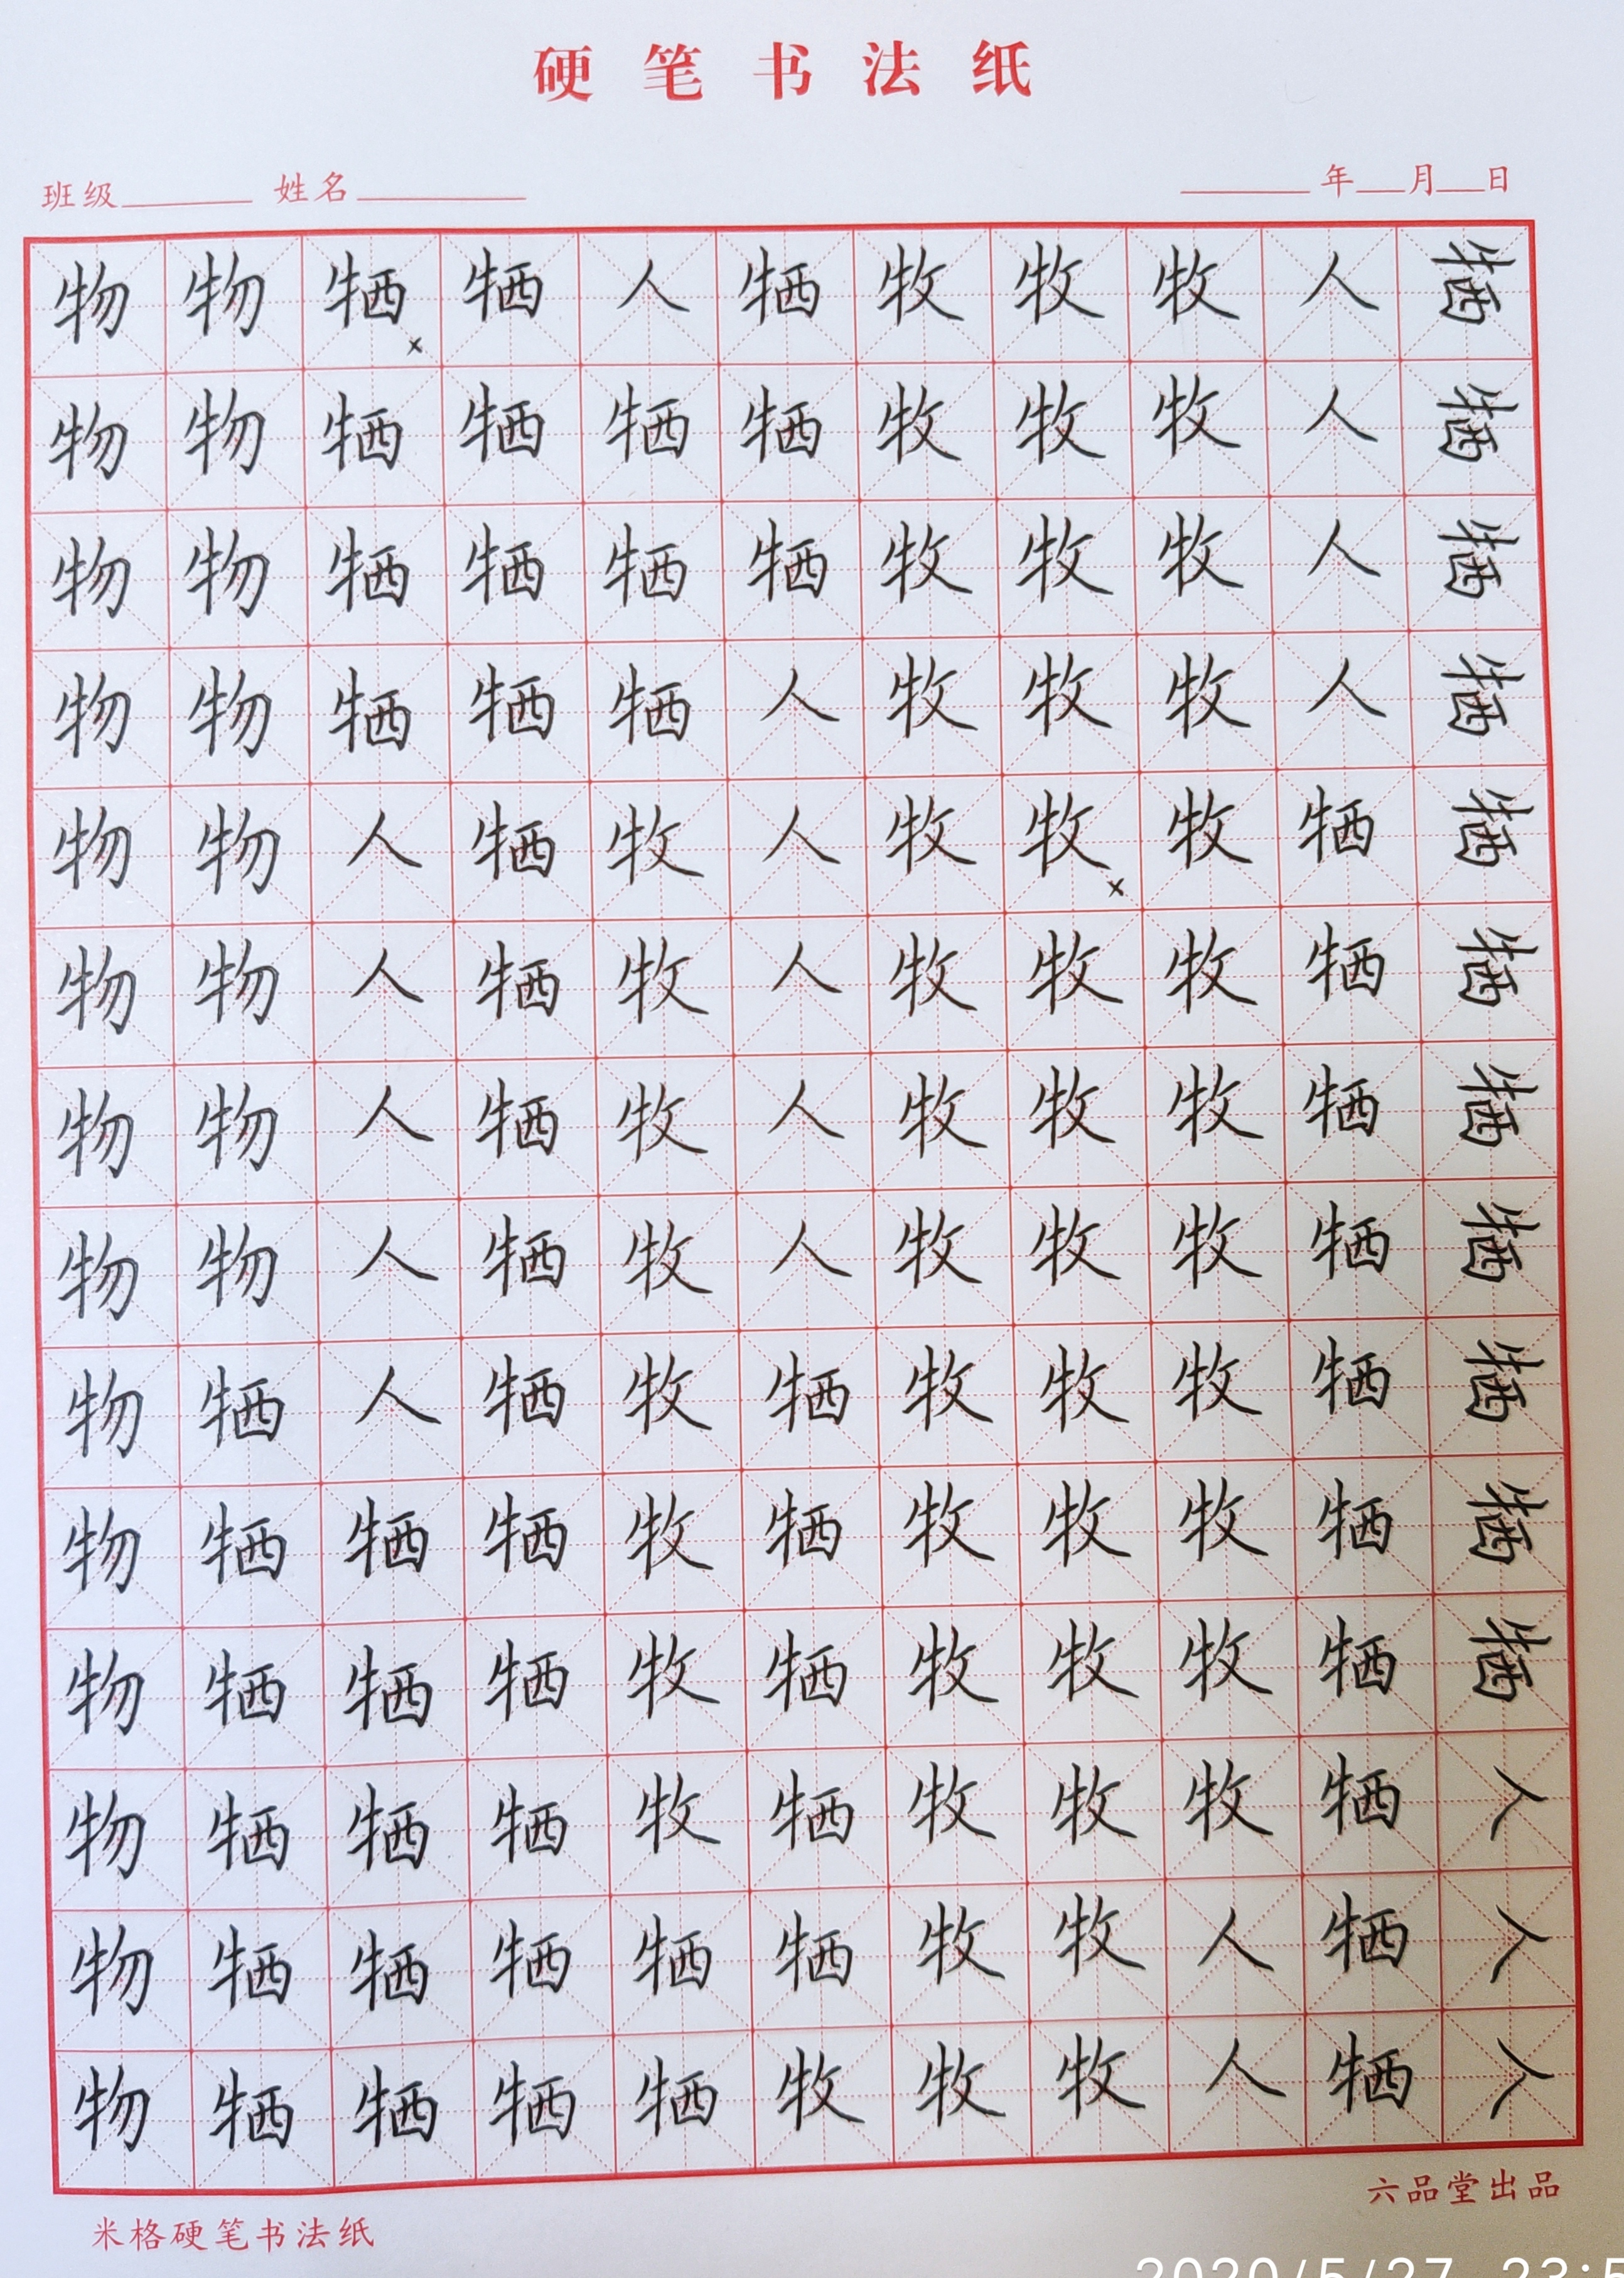 硬笔书法纸
班级 姓名 年 月 日
物物牺牺人牺牧牧牧人牺
×
物物牺牺牺牺牧牧牧人牺
物物牺牺牺牺牧牧牧人牺
物物牺牺牺人牧牧牧人牺
物物人牺牧人牧牧牧牺牺
×
物物人牺牧人牧牧牧牺牺
物物人牺牧人牧牧牧牺牺
物物人牺牧人牧牧牧牺牺
物牺人牺牧牺牧牧牧牺牺
物牺牺牺牧牺牧牧牧牺牺
物牺牺牺牧牺牧牧牧牺牺
物牺牺牺牧牺牧牧牧牺人
物牺牺牺牺牺牧牧人牺人
物牺牺牺牺牧牧牧人牺人
六品堂出品
米格硬笔书法纸
2020/5/27 23:5